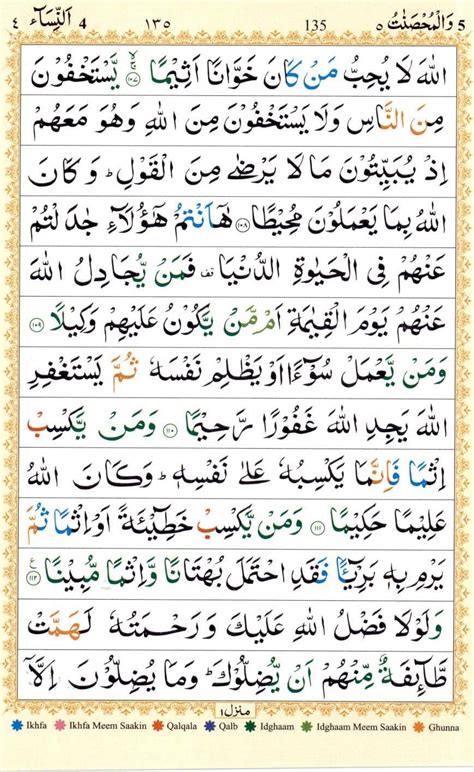 اَلنِّسَآء ٤ 4 ١٣٥ 135 وَالْمُحْصَنٰتُ ٥ 5
اللّٰهَ لَا يُحِبُّ مَنْ كَانَ خَوَّانًا اَثِيْمًا ۙ﴿۱۰۷﴾ يَّسْتَخْفُوْنَ
مِنَ النَّاسِ وَلَا يَسْتَخْفُوْنَ مِنَ اللّٰهِ وَهُوَ مَعَهُمْ
اِذْ يُبَيِّتُوْنَ مَا لَا يَرْضٰى مِنَ الْقَوْلِ ؕ وَكَانَ
اللّٰهُ بِمَا يَعْمَلُوْنَ مُحِيْطًا ﴿۱۰۸﴾ هٰۤاَنْتُمْ هٰٓؤُلَآءِ جٰدَلْتُمْ
عَنْهُمْ فِى الْحَيٰوةِ الدُّنْيَا قف فَمَنْ يُّجَادِلُ اللّٰهَ
عَنْهُمْ يَوْمَ الْقِيٰمَةِ اَمْ مَّنْ يَّكُوْنُ عَلَيْهِمْ وَكِيْلًا ﴿۱۰۹﴾
وَمَنْ يَّعْمَلْ سُوْٓءًا اَوْ يَظْلِمْ نَفْسَهٗ ثُمَّ يَسْتَغْفِرِ
اللّٰهَ يَجِدِ اللّٰهَ غَفُوْرًا رَّحِيْمًا ﴿۱۱۰﴾ وَمَنْ يَّكْسِبْ
اِثْمًا فَاِنَّمَا يَكْسِبُهٗ عَلٰى نَفْسِهٖ ؕ وَكَانَ اللّٰهُ
عَلِيْمًا حَكِيْمًا ﴿۱۱۱﴾ وَمَنْ يَّكْسِبْ خَطِيْٓئَةً اَوْ اِثْمًا ثُمَّ
يَرْمِ بِهٖ بَرِيْٓئًا فَقَدِ احْتَمَلَ بُهْتَانًا وَّاِثْمًا مُّبِيْنًا ﴿۱۱۲﴾ ع
وَلَوْلَا فَضْلُ اللّٰهِ عَلَيْكَ وَرَحْمَتُهٗ لَهَمَّتْ
طَّآئِفَةٌ مِّنْهُمْ اَنْ يُّضِلُّوْكَ ؕ وَمَا يُضِلُّوْنَ اِلَّاۤ
منزل ١
Ikhfa Ikhfa Meem Saakin Qalqala Qalb Idghaam Idghaam Meem Saakin Ghunna